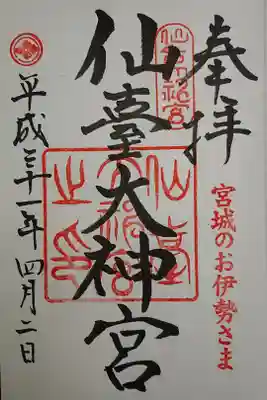 奉拝
宮城のお伊勢さま
仙臺大神宮
平成三十一年四月二日